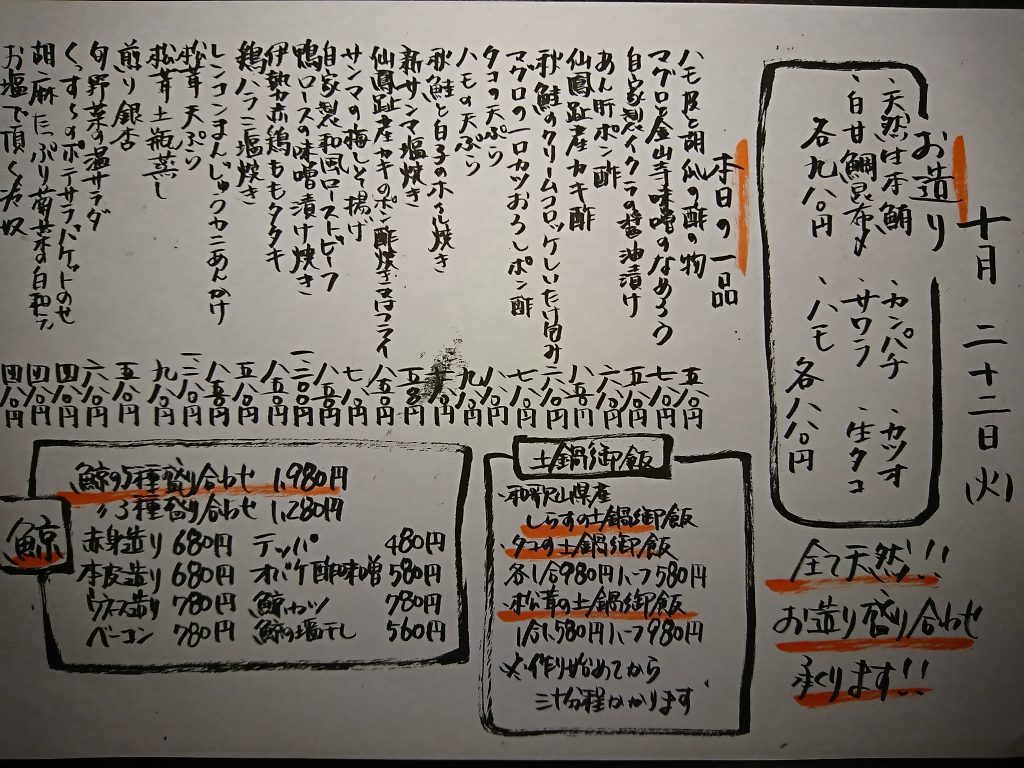 十月 二十二日(火)
お造り
・天然生本鮪 ・カンパチ ・カツオ
・白甘鯛昆布〆 サワラ ・生タコ
各九八〇円 ・ハモ 各八八〇円
全て天然!!
お造り盛り合わせ
承ります!!
本日の一品
ハモ皮と胡瓜の酢の物 五八〇円
マグロと金山寺味噌のなめろう 七八〇円
自家製イクラの醤油漬け 五八〇円
あん肝ポン酢 六八〇円
仙鳳趾産カキ酢 八五〇円
秋鮭のクリームコロッケしいたけ包み 六八〇円
マグロの一口カツおろしポン酢 七八〇円
タコの天ぷら 八八〇円
ハモの天ぷら 九八〇円
秋鮭と白子のホイル焼き
新サンマ塩焼き
仙鳳趾産カキのポン酢焼き又はフライ 八五〇円
サンマの梅しそ揚げ 七八〇円
自家製和風ローストビーフ 八八〇円
鴨ロースの味噌漬け焼き 一二〇〇円
伊勢赤鶏ももタタキ 八八〇円
鶏ハラミ塩焼き 五八〇円
レンコンまんじゅうカニあんかけ 八五〇円
松茸天ぷら 一二八〇円
松茸土瓶蒸し 九八〇円
煎り銀杏 五八〇円
旬野菜の温サラダ 六八〇円
くっすーのポテサラバケットのせ 四八〇円
胡麻たっぷり菊菜の白和え 四八〇円
お塩で頂く冷奴 四八〇円
土鍋御飯
・和歌山県産
しらすの土鍋御飯
・タコの土鍋御飯
各1合980円ハーフ580円
・松茸の土鍋御飯
1合1,580円ハーフ980円
※作り始めてから
三十分程かかります
鯨
鯨の5種盛り合わせ 1,980円
〃3種盛り合わせ 1,280円
赤身造り 680円 テッパ 480円
本皮造り 680円 オバケ酢味噌 580円
ウネス造り 780円 鯨カツ 780円
ベーコン 780円 鯨の塩干し 560円